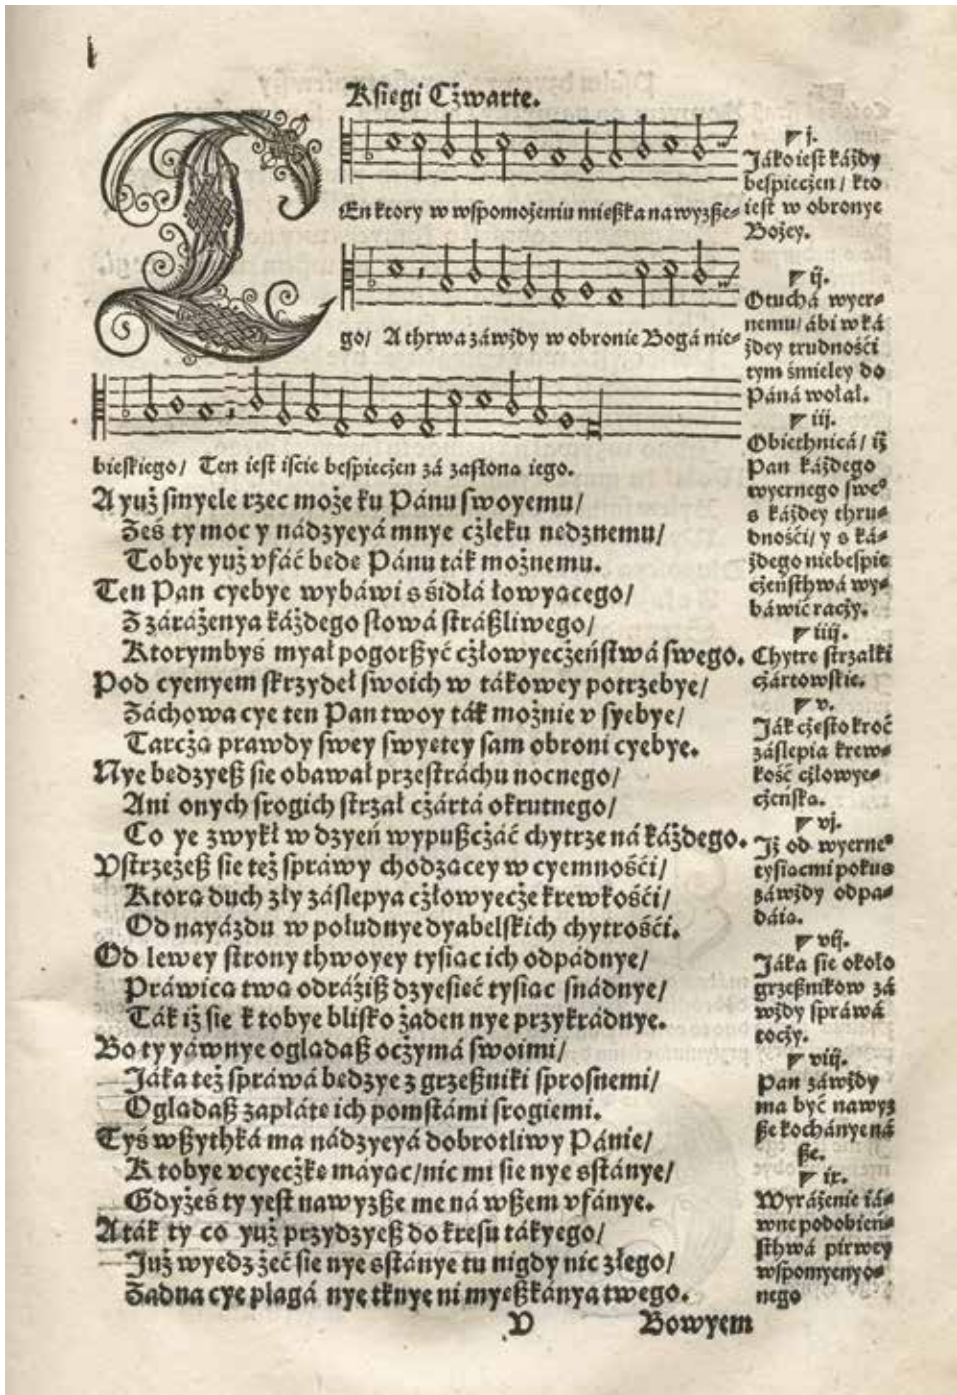 Ksiegi Cżwarte.
TEn ktory w wspomożeniu mießka nawyzße-
go/ A thrwa záwżdy w obronie Bogá nie-
bieskiego/ Ten iest iście bespieczen zá zasłona iego.
A yuż smyele rzec może ku Pánu swoyemu/
Żeś ty moc y nádzyeyá mnye cżłeku nedznemu/
Tobye yuż vfáć bede Pánu ták możnemu.
Ten Pan cyebye wybáwi s śidłá łowyacego/
Z zaráżenya káżdego słowá stráßliwego/
Ktorymbyś myał pogorßyć cżłowyecżeństwá swego.
Pod cyenyem skrzydeł swoich w tákowey potrzebye/
Záchowa cye ten Pan twoy ták możnie v syebye/
Tarcża prawdy swey swyetey sam obroni cyebye.
Nye bedzyeß sie obawał przestráchu nocnego/
Ani onych srogich strzał cżártá okrutnego/
Co ye zwykł w dzyeń wypußcżáć chytrze ná káżdego.
Vstrzeżeß sie też spráwy chodzacey w cyemnośći/
Ktora duch zły záslepya cżłowyecże krewkośći/
Od nayázdu w południe dyabelskich chytrośći.
Od lewey strony thwoyey tysiac ich odpádnye/
Práwica twa odráżiß dzyesieć tysiac snádnye/
Ták iż sie k tobye blisko żaden nye przykrádnye.
Bo ty yáwnye ogladaß ocżymá swoimi/
Jáka też spráwá bedzye z grzeßniki sprosnemi/
Ogladaß zapłáte ich pomstámi srogiemi.
Tyś wßythká ma nádzyeyá dobrotliwy Pánie/
K tobye vcyecżke máyac/ nic mi sie nye sstánye/
Gdyżeś ty yest nawyzße me ná wßem vfánye.
A ták ty co yuż przydzyeß do kresu tákyego/
Już wyedz żeć sie nye sstánye tu nigdy nic złego/
Żadna cye plagá nye tknye ni myeßkánya twego.
V Bowyem
j.
Jáko iest káżdy
bespieczen/ kto
iest w obronye
Bożey.
ij.
Otuchá wyer-
nemu/ ábi w ká
żdey trudnośći
tym śmieley do
Páná wołał.
iij.
Obiethnicá/ iż
Pan káżdego
wyernego swe°
s káżdey thru-
dnośći/ y s ká-
żdego niebespie
cżeństhwá wy-
báwić racży.
iiij.
Chytre strzałki
cżártowskie.
v.
Ják cżesto kroć
záslepia krew-
kość cżłowye-
cżeńska.
vj.
Jż od wyerne°
tysiacmi pokus
záwżdy odpa-
dáia.
vij.
Jáka sie około
grzeßnikow zá
wżdy spráwá
tocży.
viij.
Pan záwżdy
ma być nawyz
ße kochánye ná
ße.
ix.
Wyráżenie iá-
wne podobień-
sthwá pirwey
wspomyenyo-
nego